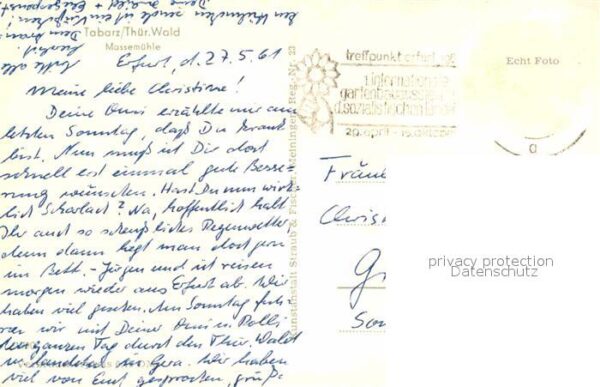 Tabarz/Thür. Wald
Massemühle
Erfurt, d. 27.5.61
Meine liebe Christine!
Deine Omi erzählte mir am
letzten Sonntag, daß Du krank
bist. Nun muß ich Dir doch
schnell erst einmal gute Besse-
rung wünschen. Hast Du nun wirk-
lich Scharlach? Na, hoffentlich habt
Ihr auch so scheußliches Regenwetter
denn dann liegt man doch gern
im Bett. - Jürgen und ich reisen
morgen wieder aus Erfurt ab. Wir
haben viel gesehen. Am Sonntag fuh-
ren wir mit Deiner Omi u.
den ganzen Tag durch den Thür. Wald
u. landeten in Gera. Wir haben
viel von Euch gesprochen, grüß
treffpunkt erfurt
1. internationale
gartenbauausstellung
d. sozialistischen länder
29. april - 15. oktober
Echt Foto
Kunstanstalt Straub & Fischer, Meiningen Reg. Nr. 23
a
Fräu
Christ
G
privacy protection
Datenschutz